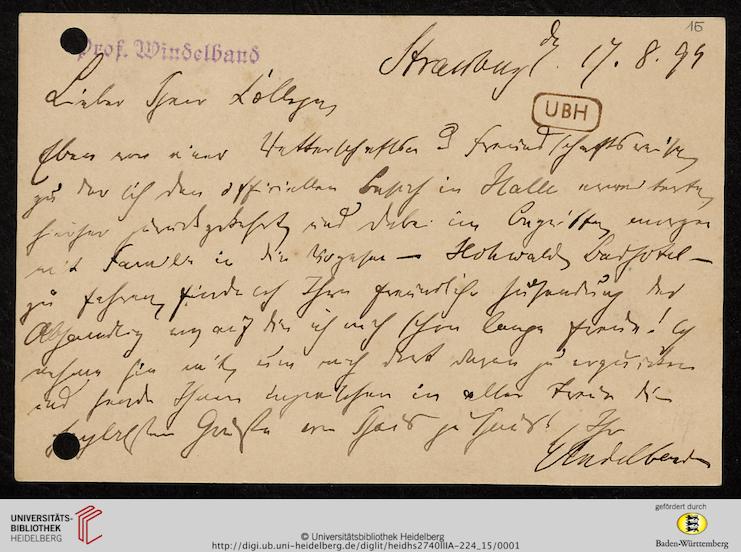 15
Prof. Windelband
Strassburg d. 17. 8. 94
Lieber Herr College,
UBH
Eben von einer Vetterschafts- & Freundschaftsreise,
zu der ich den officiellen Besuch in Halle erweiterte,
hierher zurückgekehrt, und dabei im Begriffe, morgen
mit Familie in die Vogesen – Hohwald, Badhotel –
zu fahren, finde ich Ihre freundliche Zusendung der
Abhandlung, auf die ich mich schon lange freue! Ich
nehme sie mit, um mich dort daran zu erquicken
und sende Ihnen inzwischen in aller Treue die
Grüße von Haus zu Haus! Ihr
Windelband
UNIVERSITÄTS-
BIBLIOTHEK
HEIDELBERG
© Universitätsbibliothek Heidelberg
http://digi.ub.uni-heidelberg.de/diglit/heidhs2740IIIA-224_15/0001
gefördert durch
Baden-Württemberg